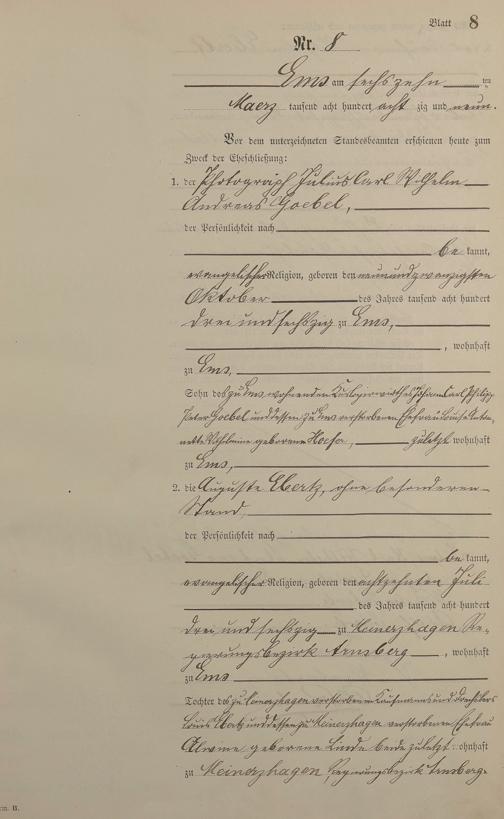 Blatt 8
Nr. 8
Ems am sechszehn ten
Maerz tausend acht hundert acht zig und neun.
Vor dem unterzeichneten Standesbeamten erschienen heute zum
Zweck der Eheschließung:
1. der Photograph Julius Carl Wilhelm
Andreas Goebel,
der Persönlichkeit nach
be kannt,
evangelischer Religion, geboren den neunundzwanzigsten
Oktober des Jahres tausend acht hundert
drei und sechszig zu Ems,
, wohnhaft
zu Ems,
Sohn des zu Ems wohnenden Johann Carl Philipp
Peter Goebel und dessen zu Ems verstorbenen Ehefrau Louise
geborene zuletzt wohnhaft
zu Ems,
2. die Auguste Ebertz, ohne besonderen
Stand
der Persönlichkeit nach
be kannt,
evangelischer Religion, geboren den achtzehnten Juli
des Jahres tausend acht hundert
drei und sechszig zu Meinerzhagen Re-
gierungsbezirk Arnsberg, wohnhaft
zu Ems
Tochter des zu Meinerzhagen verstorbenen Kaufmanns und
Louis Ebertz und dessen zu Meinerzhagen verstorbenen Ehefrau
Alwine geborene Linde beide zuletzt wohnhaft
zu Meinerzhagen, Regierungsbezirk Arnsberg.
B.